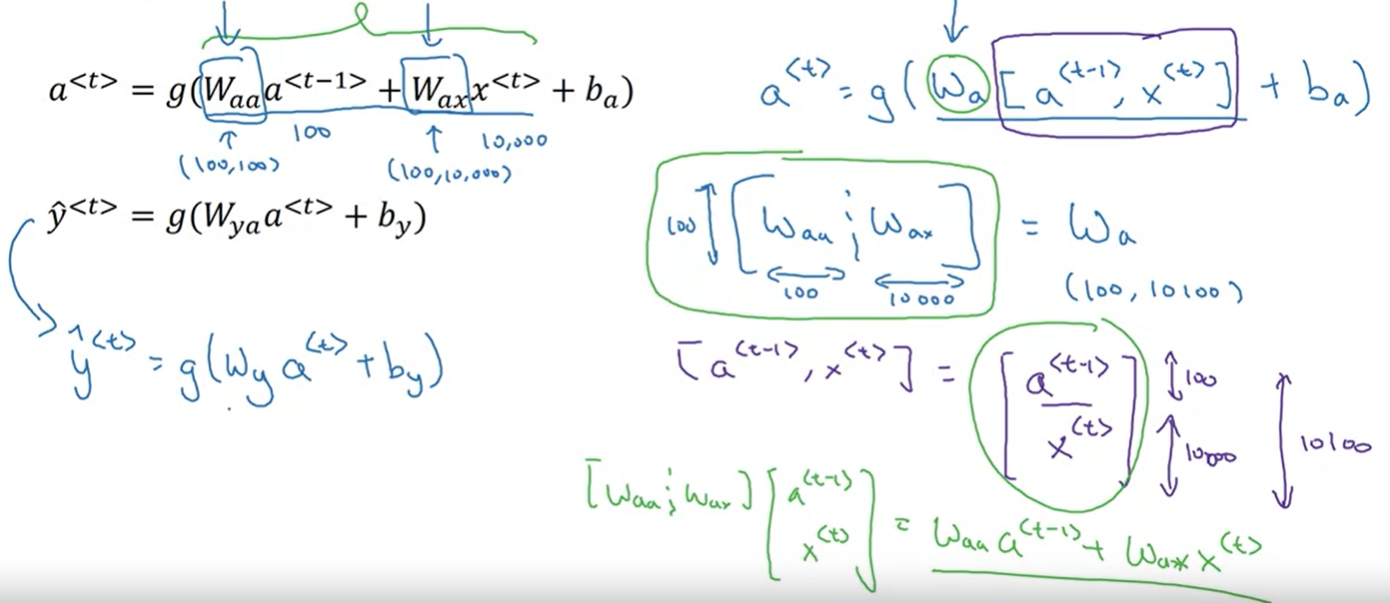 a<t> = g(Waa a<t−1> + Wax x<t> + ba)
↑ 100 ↑ 10,000
(100,100) (100,10,000)
ŷ<t> = g(Wya a<t> + by)
ŷ<t> = g(Wy a<t> + by)
a<t> = g(Wa [a<t-1>, x<t>] + ba)
100 [Waa ; Wax] = Wa
100 10000 (100, 10100)
[a<t-1>, x<t>] = [a<t-1> 100
x<t>] 10000 10100
[Waa ; Wax] [a<t-1>
x<t>] = Waa a<t-1> + Wax x<t>